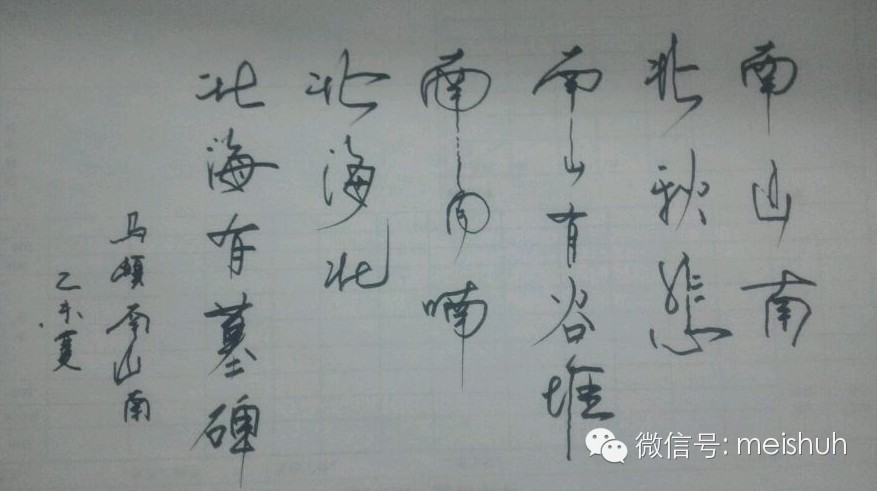 南山南
北秋悲
南山有谷堆
南风喃
北海北
北海有墓碑
马頔南山南
乙未夏
微信号: meishuh